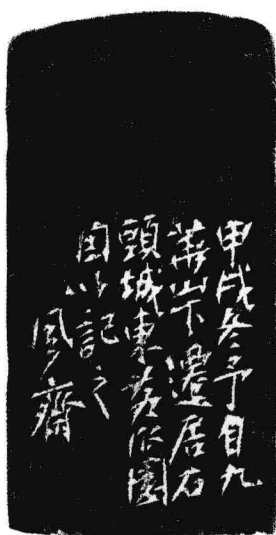 甲戌冬予自九
華山下遷居石
頭城東黃瓜園
因以記之
風齋